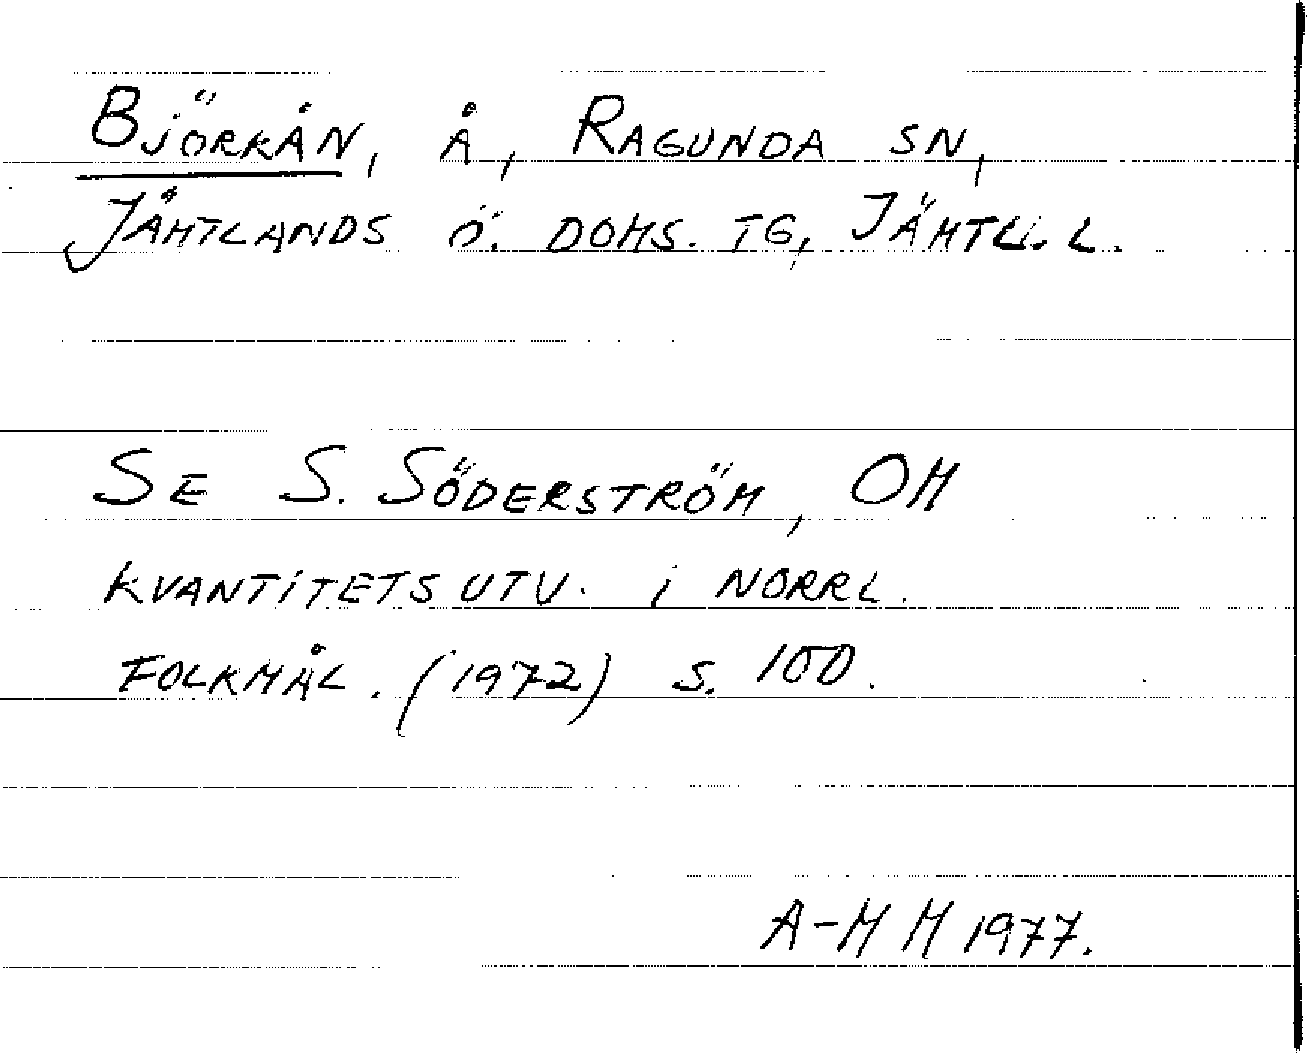 Björkån, å, Ragunda sn,
Jämtlands ö. doms. tg, Jämtl. l.
Se S. Söderström, Om
kvantitetsutv. i norrl.
folkmål. (1972) s. 100.
A-M M 1977.